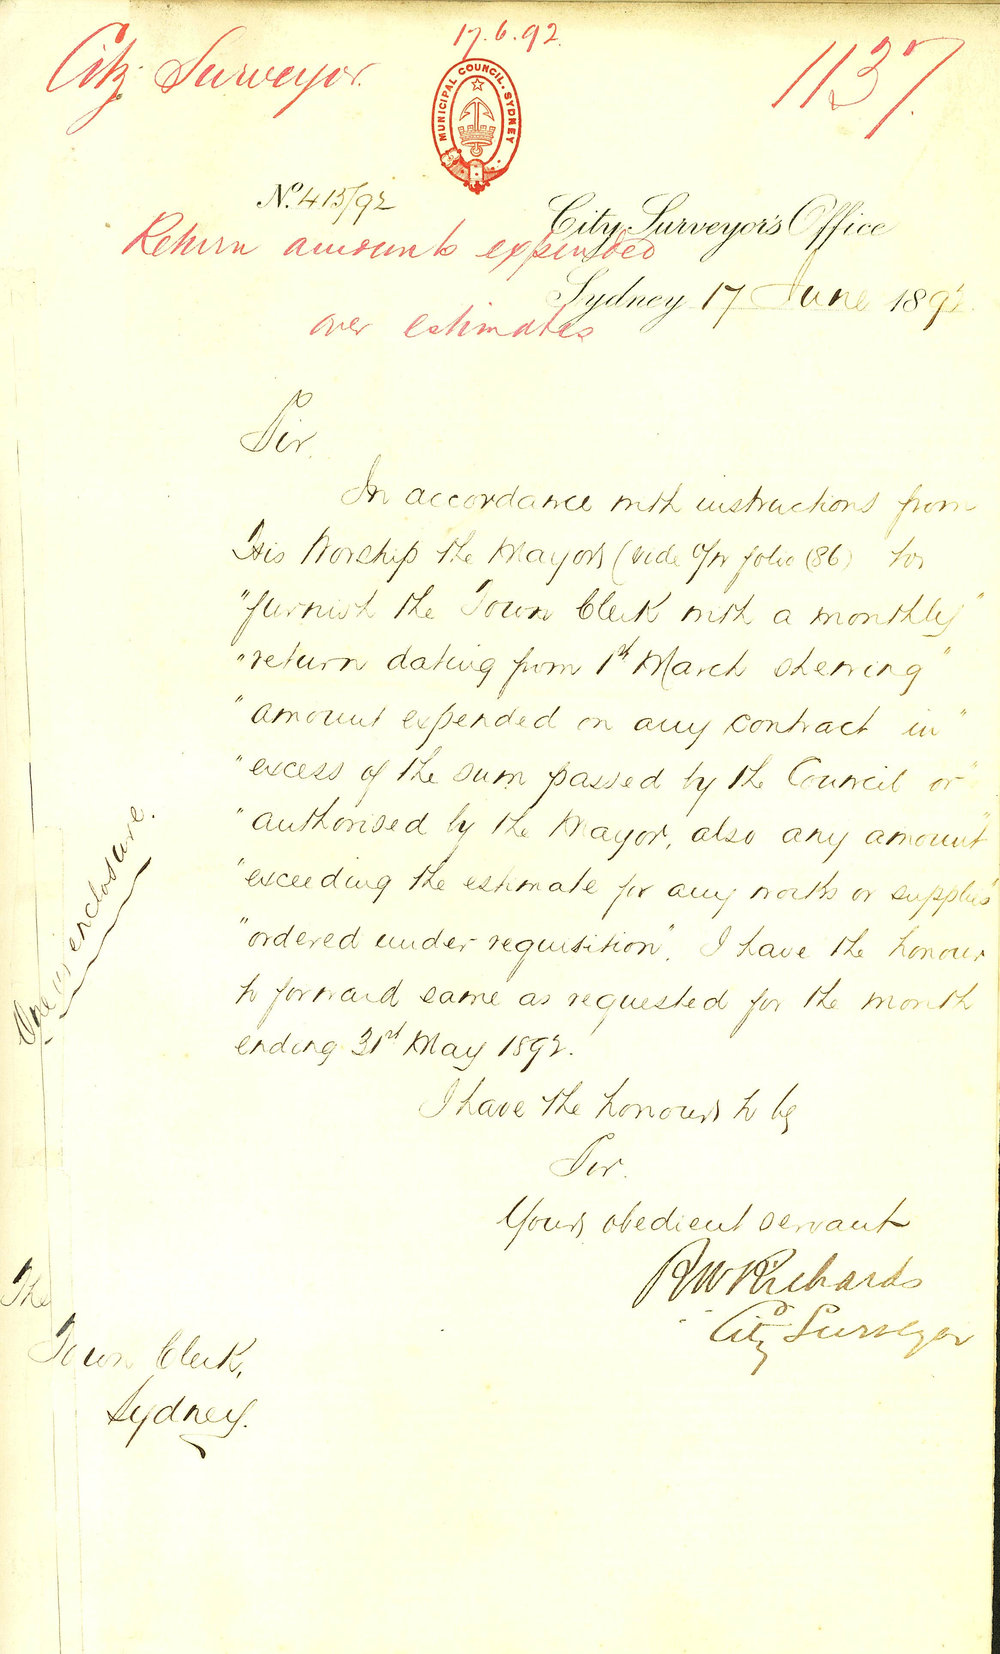 17.6.92.
City Surveyor.
1137.
MUNICIPAL COUNCIL. SYDNEY
No. 415/92
City Surveyor's Office
Return amounts expended
Sydney 17 June 1892.
over estimates
Sir.
In accordance with instructions from
His Worship the Mayor (vide folio 86) to
"furnish the Town Clerk with a monthly"
"return dating from 1st March shewing"
"amount expended on any contract in"
"excess of the sum passed by the Council or"
"authorised by the Mayor, also any amount"
"exceeding the estimate for any works or supplies"
"ordered under requisition". I have the honour
to forward same as requested for the month
ending 31st May 1892.
One enclosure.
I have the honour to be
Sir.
Yours obedient servant
R W Richards
City Surveyor
The
Town Clerk,
Sydney.